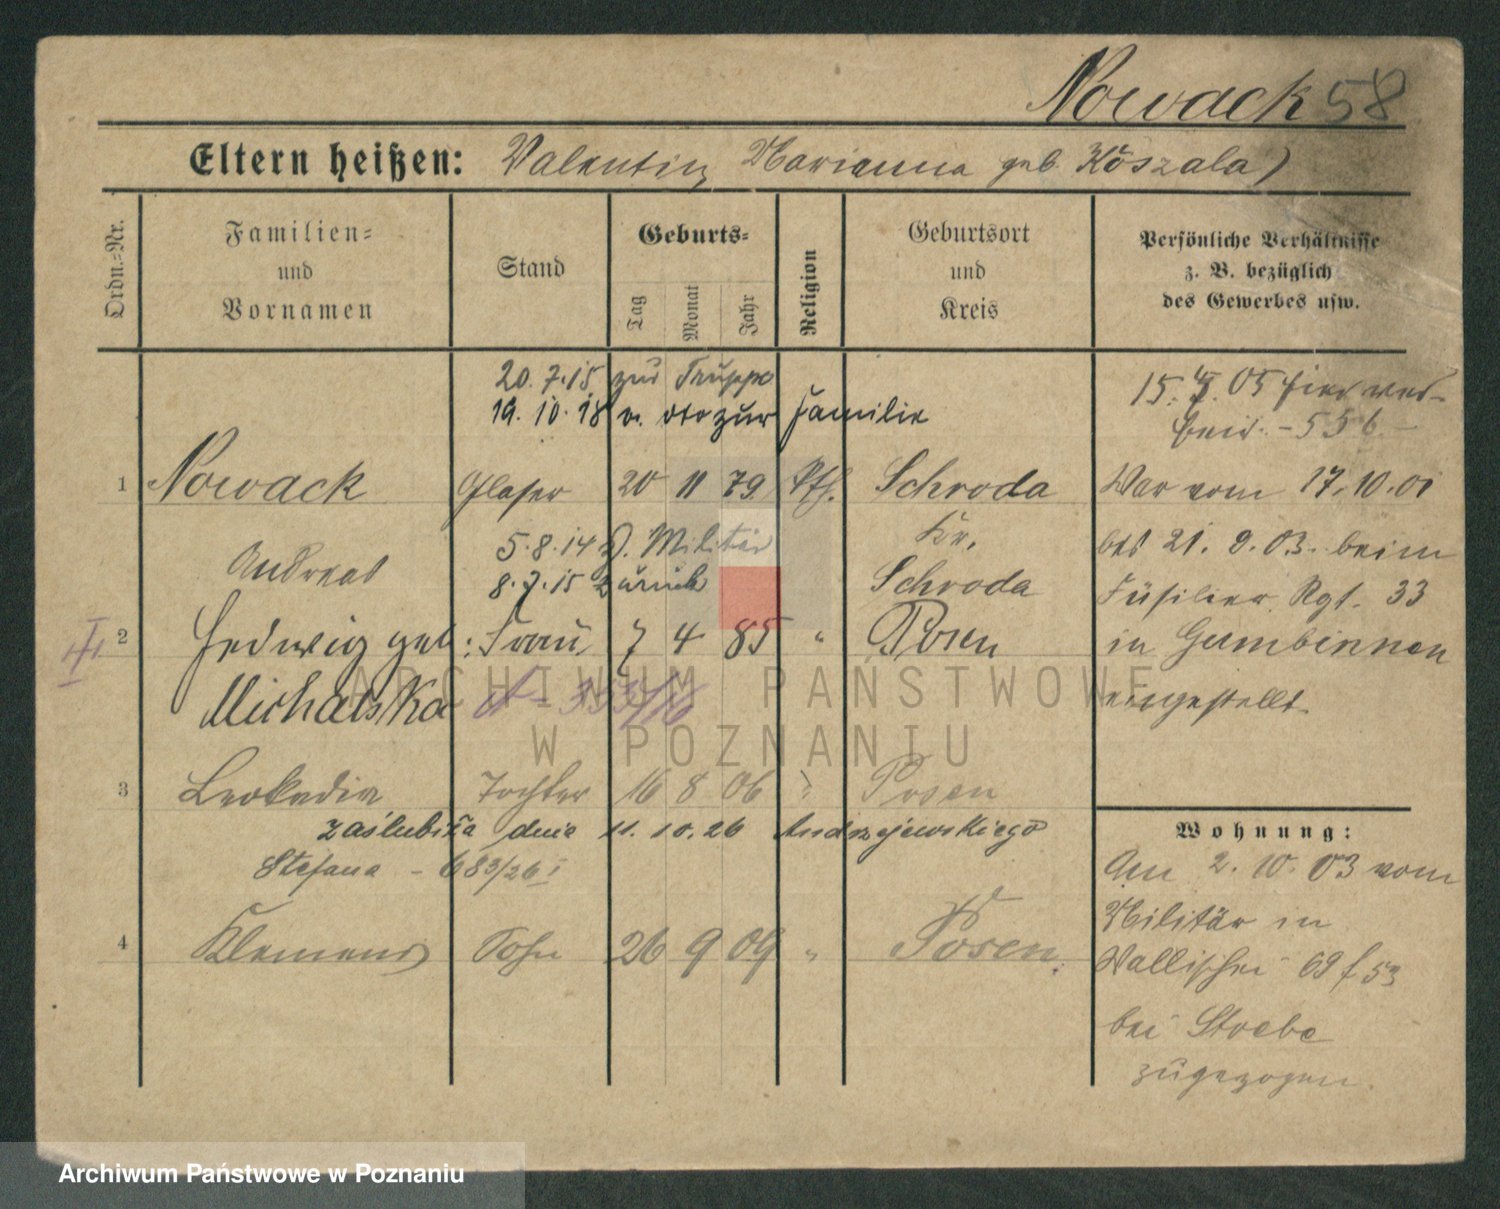 Nowack 58
Eltern heißen: Valentin, Marianna geb. Koszala
Ordn.-Nr.
Familien- und Vornamen
Stand
Geburts-
Tag Monat Jahr
Religion
Geburtsort und Kreis
Persönliche Verhältnisse
z. B. bezüglich
des Gewerbes usw.
20.7.15 zur Truppe
19.10.18 v. dto zur Familie
15. 05 hier ver-
heir. - 556 -
1 Nowack Glaser 20 11 79 kth. Schroda
Kr.
Schroda
Andreas
5.8.14 z. Militär
8.7.15 zurück
War vom 17.10.01
bis 21.9.03. beim
Füsilier Rgt. 33
in Gumbinnen
eingestellt.
2 Hedwig geb: Frau 7 4 85 " Posen
Michalska
3 Leokadia Tochter 16 8 06 " Posen
zaślubiła dnia 11.10.26 Andrzejewskiego
Stefana - 683/26 I
4 Klemens Sohn 26 9 09 " Posen
Wohnung:
Am 2.10.03 vom
Militär in
Wallischei 69 f 53
bei Stroebe
zugezogen
ARCHIWUM PAŃSTWOWE
W POZNANIU
Archiwum Państwowe w Poznaniu